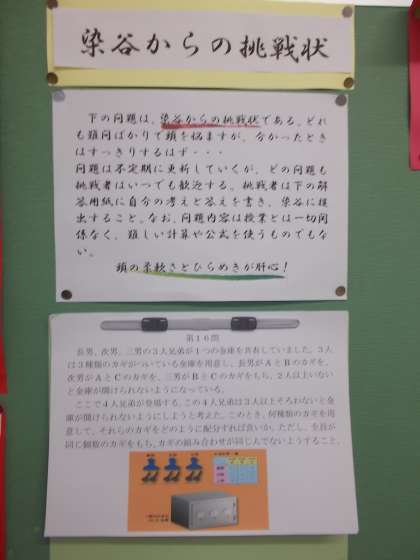 染谷からの挑戦状
下の問題は、染谷からの挑戦状である。どれ
も難問ばかりで頭を悩ますが、分かったとき
はすっきりするはず・・・
問題は不定期に更新していくが、どの問題も
挑戦者はいつでも歓迎する。挑戦者は下の解
答用紙に自分の考えと答えを書き、染谷に提
出すること。なお、問題内容は授業とは一切関
係なく、難しい計算や公式を使うものでもな
い。
頭の柔軟さとひらめきが肝心！
第16問
長男、次男、三男の3人兄弟が1つの金庫を共有していました。3人
は3種類のカギがついている金庫を用意し、長男がAとBのカギを、
次男がAとCのカギを、三男がBとCのカギをもち、2人以上いない
と金庫が開けられないようになっている。
ここで4人兄弟が登場する。この4人兄弟は3人以上そろわないと金
庫が開けられないようにしようと考えた。このとき、何種類のカギを用
意して、それらのカギをどのように配分すれば良いか。ただし、全員が
同じ個数のカギをもち、カギの組み合わせが同じ人でないようすること。